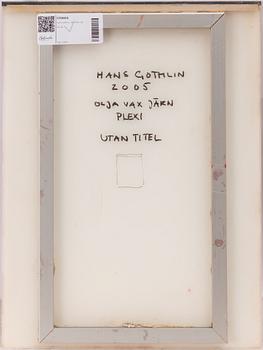 HANS GOTHLIN
2005
OLJA VAX JÄRN
PLEXI
UTAN TITEL